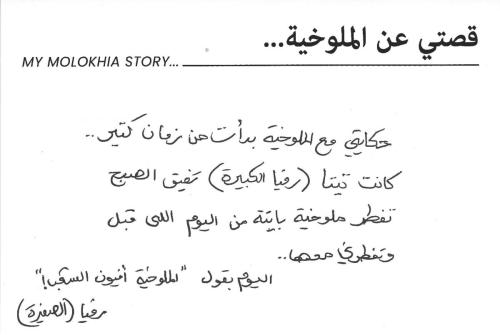 قصتي عن الملوخية...
MY MOLOKHIA STORY...
حكايتي مع الملوخية بدأت من زمان كتير..
كانت تيتا (رقيا الكبيرة) تفيق الصبح
تفطر ملوخية بايتة من اليوم اللي قبل
وتفطرني معها..
اليوم بقول "الملوخية أفيون الشعب!"
رقيا (الصغيرة)